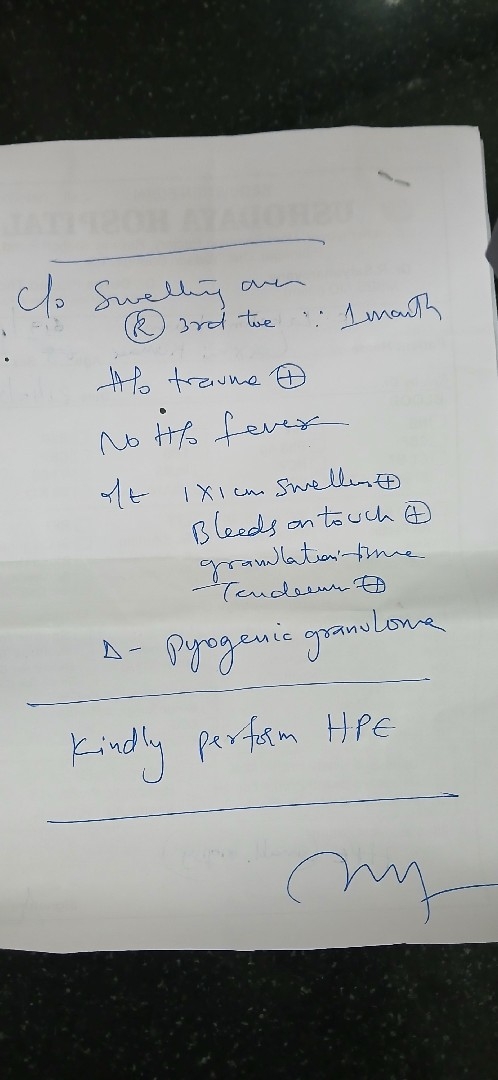 C/o Swelling over
(R) 3rd toe ∵ 1 month
H/o trauma ⊕
No H/o fever
o/E 1x1 cm swelling ⊕
Bleeds on touch ⊕
granulation tissue
Tenderness ⊕
Δ - Pyogenic granuloma
Kindly perform HPE